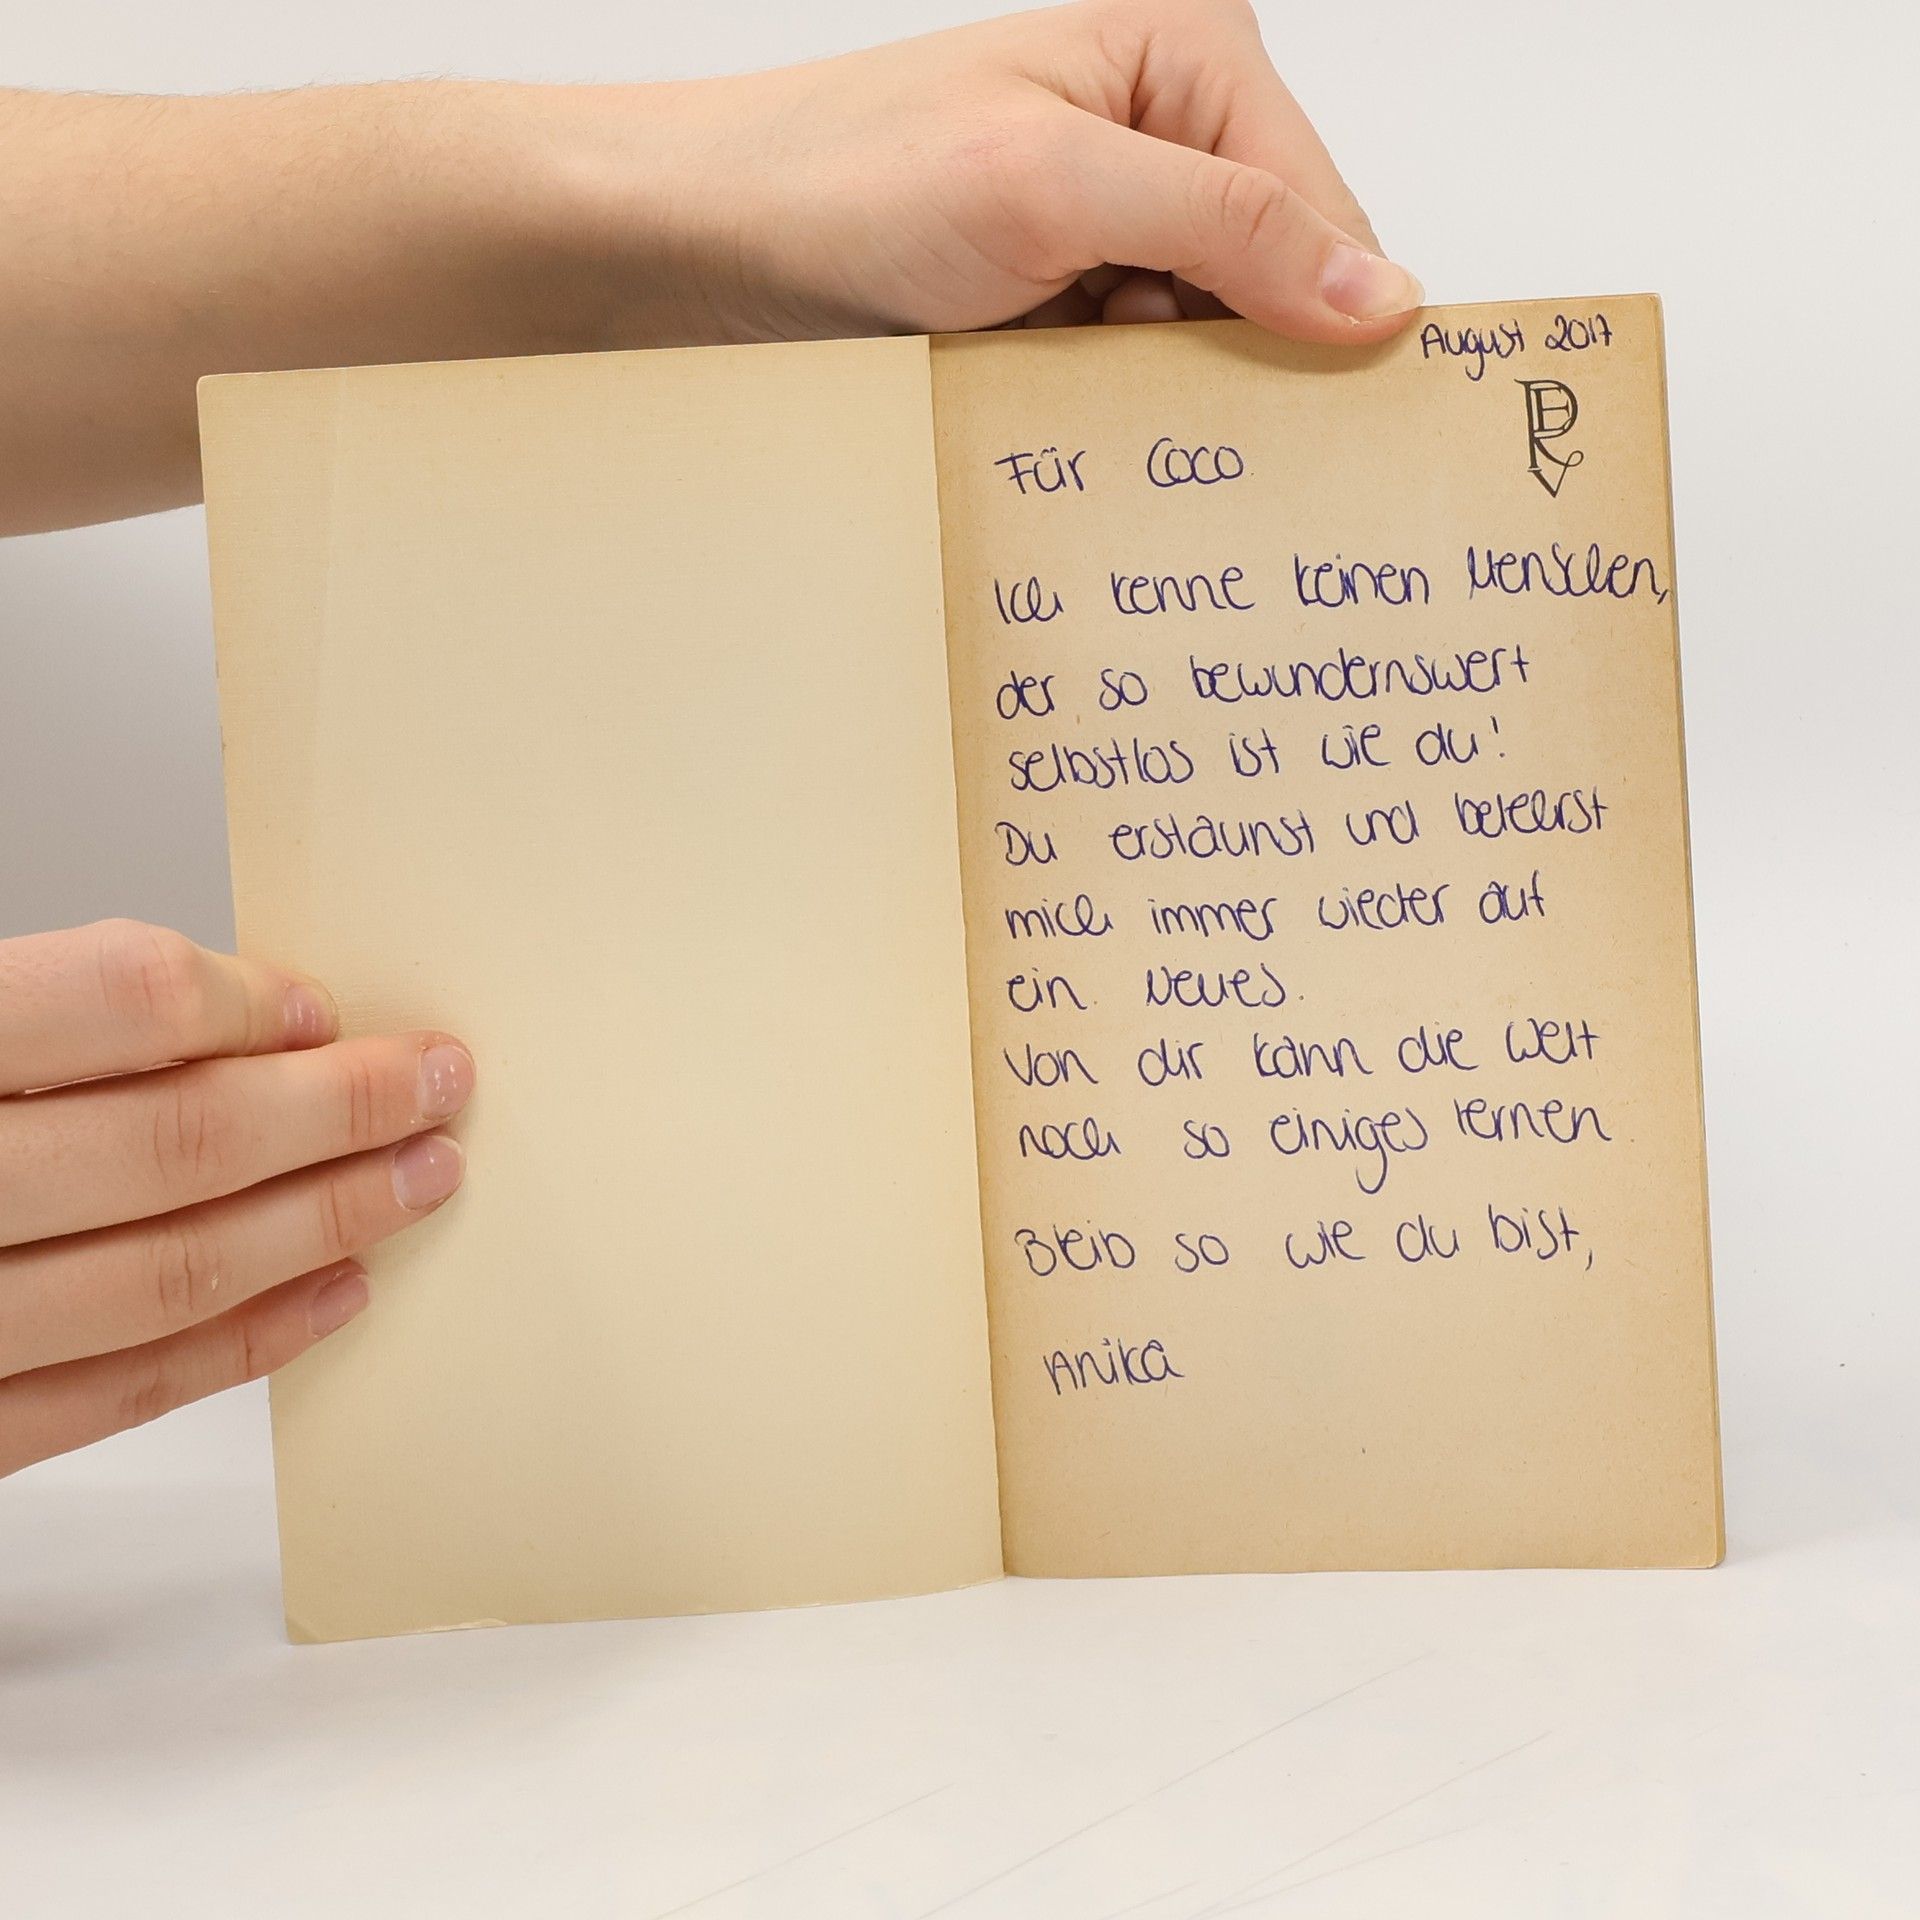 August 2017
Für Coco.
Ich kenne keinen Menschen,
der so bewundernswert
selbstlos ist wie du!
Du erstaunst und belehrst
mich immer wieder auf
ein Neues.
Von dir kann die Welt
noch so einiges lernen.
Bleib so wie du bist,
Anika